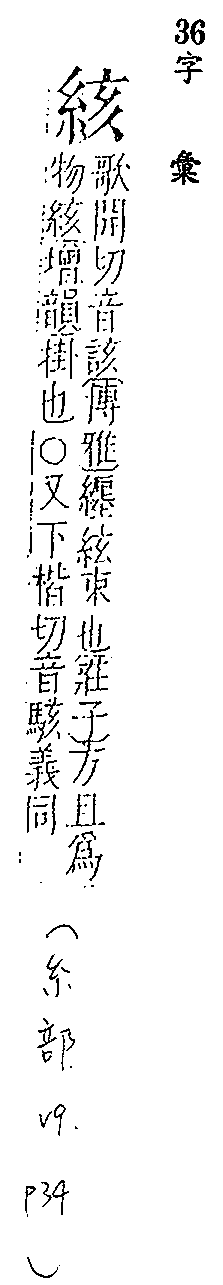 36
字彙
絯
歌開切音該博雅纒絃束也莊子方且爲
物絯增韻掛也○又下楷切音駭義同
(糸部 v9. p34)